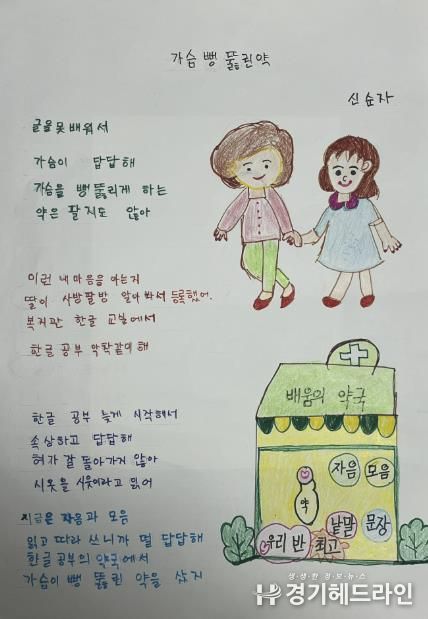 가슴 뻥 뚫린 약
신순자
글을 못 배워서
가슴이 답답해
가슴을 뻥 뚫리게 하는
약은 팔지도 않아
이런 내 마음을 아는지
딸이 사방팔방 알아봐서 등록했어.
복지관 한글 교실에서
한글 공부 악착같이 해
한글 공부 늦게 시작해서
속상하고 답답해
혀가 잘 돌아가지 않아
시옷을 시읏이라고 읽어
지금은 자음과 모음
읽고 따라 쓰니까 덜 답답해
한글 공부의 약국에서
가슴이 뻥 뚫린 약을 샀지
배움의 약국
자음 모음
약
낱말 문장
우리 반 최고
생·생·한 정·보·뉴·스
경기헤드라인